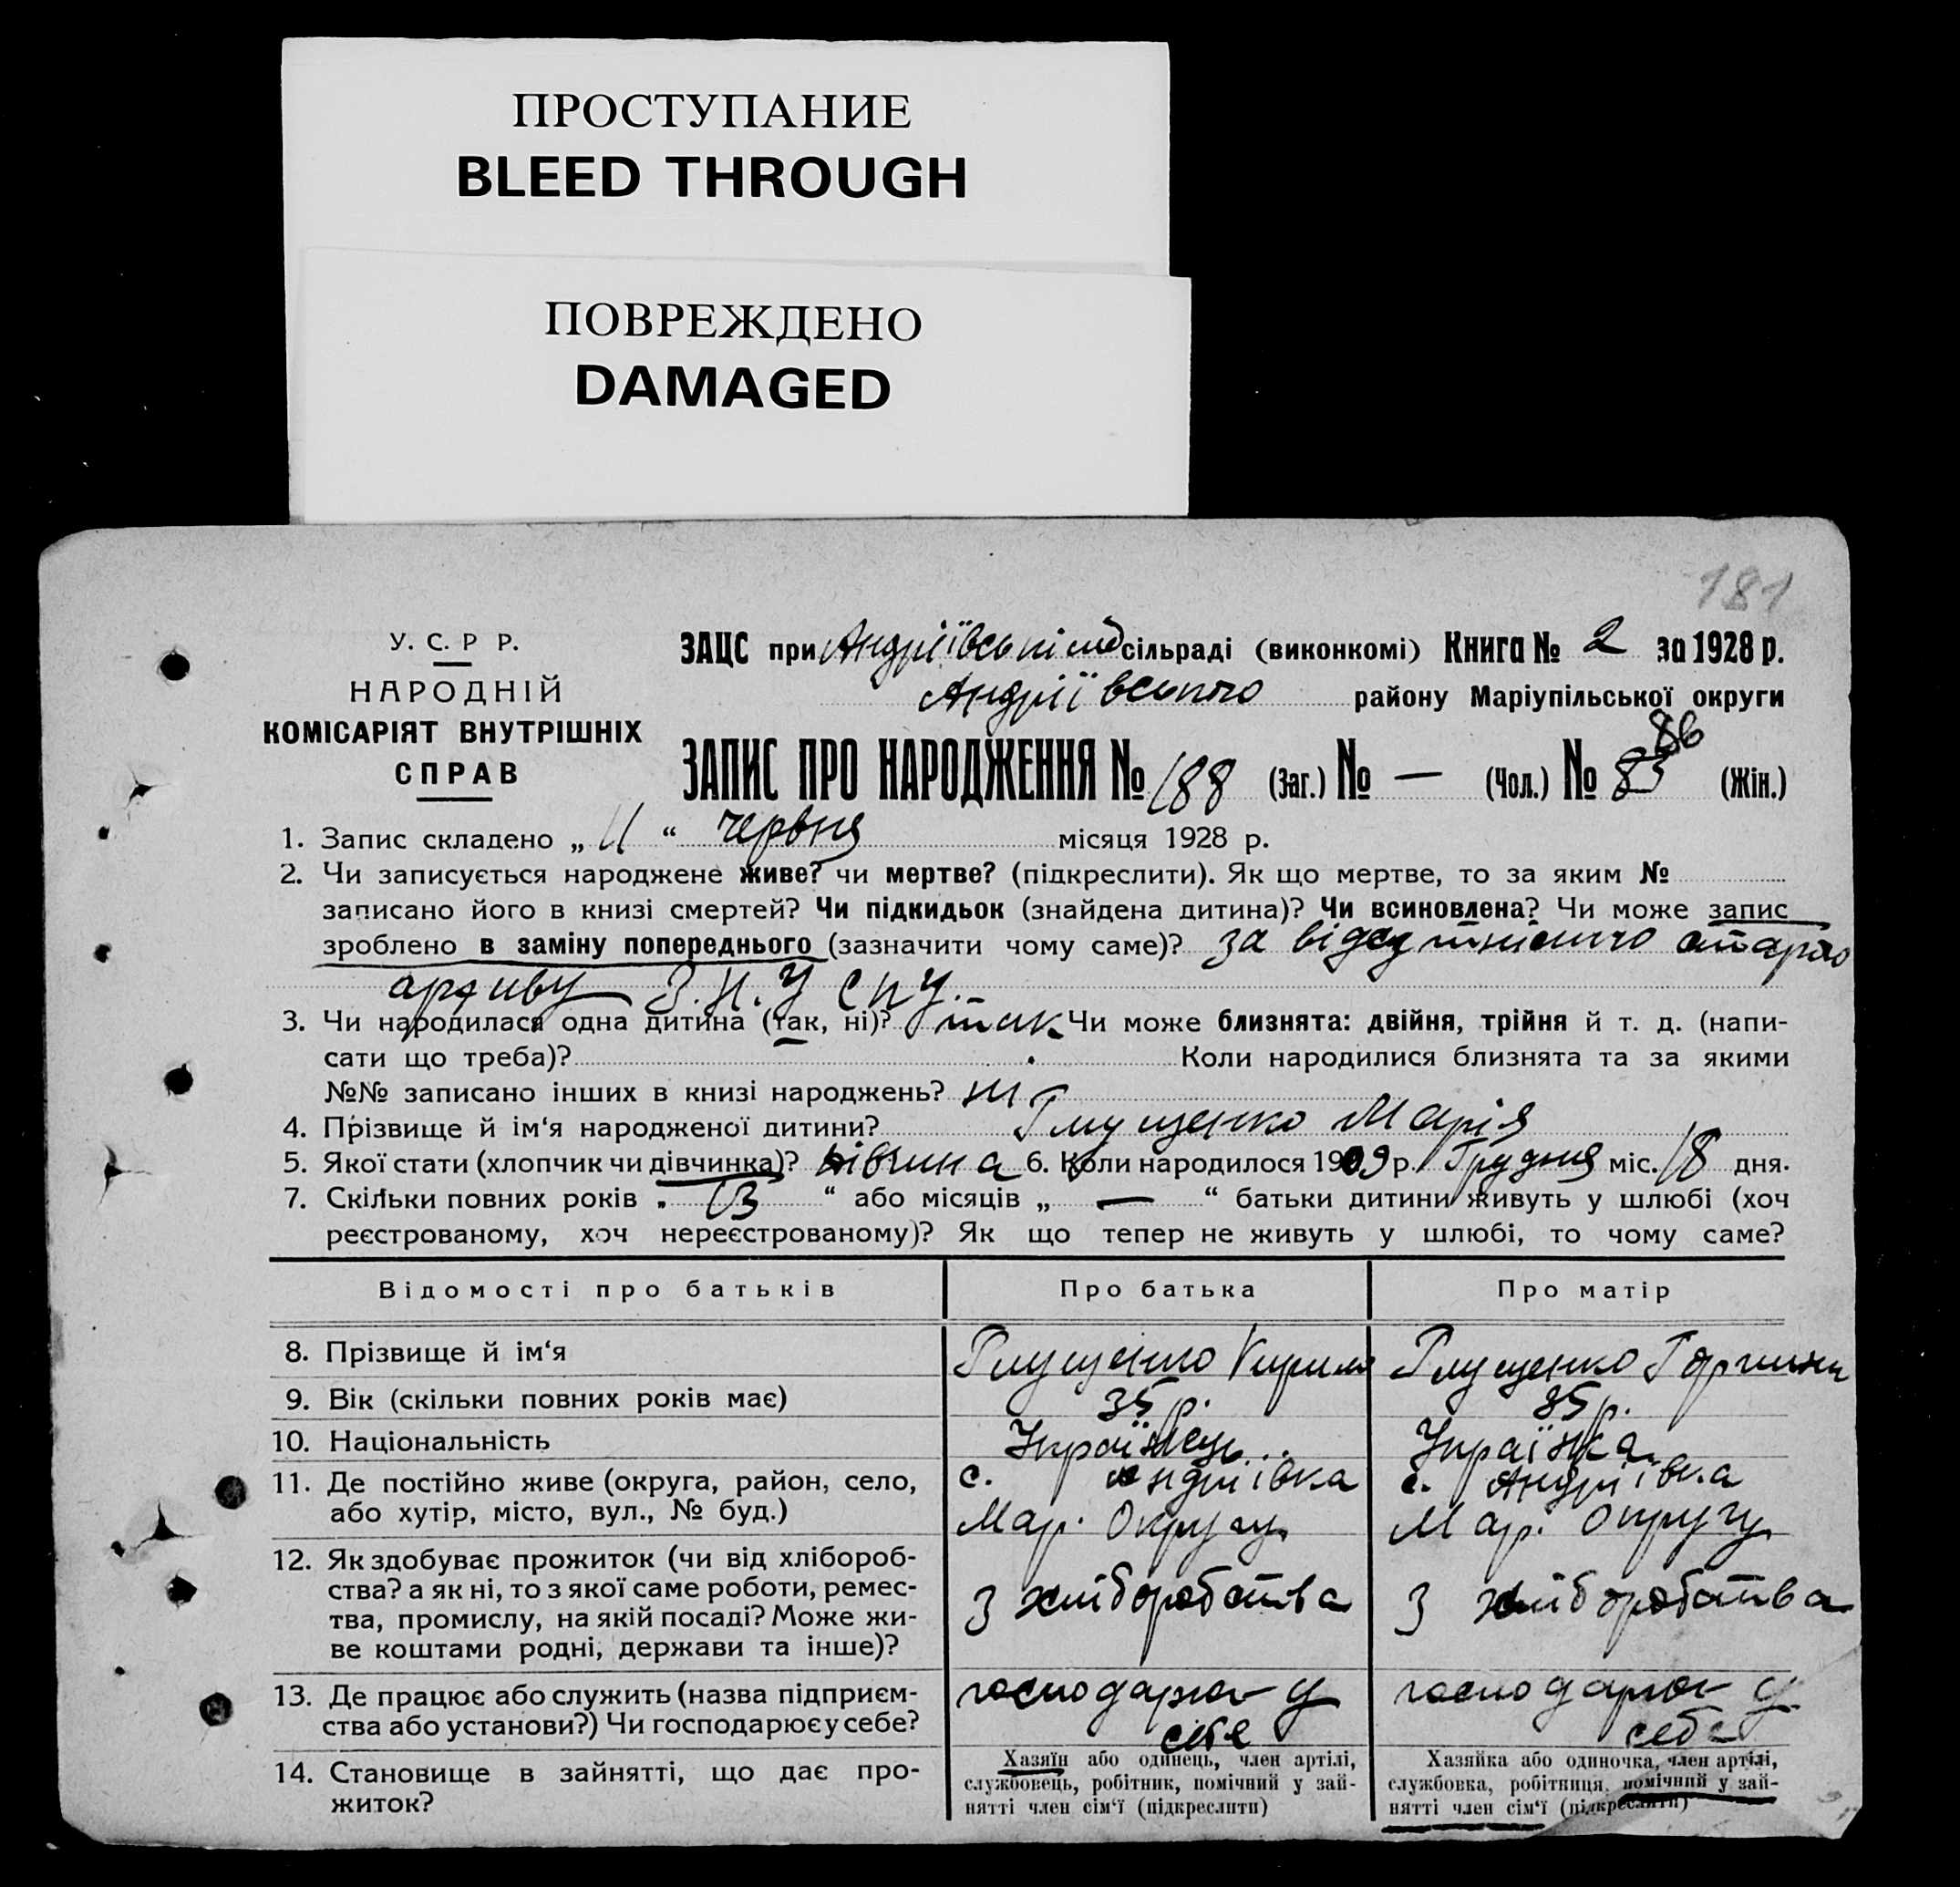 ПРОСТУПАНИЕ
BLEED THROUGH
ПОВРЕЖДЕНО
DAMAGED
181
У. С. Р Р.
НАРОДНІЙ
КОМІСАРІЯТ ВНУТРІШНІХ
СПРАВ
ЗАЦС при Андріївські сільраді (виконкомі) Книга № 2 за 1928 р.
Андріївського району Маріупільської округи
ЗАПИС ПРО НАРОДЖЕННЯ № 188 (Заг.) № — (Чол.) № 83 86 (Жін.)
1. Запис складено „ 11 “ червня місяця 1928 р.
2. Чи записується народжене живе? чи мертве? (підкреслити). Як що мертве, то за яким №
записано його в книзі смертей? Чи підкидьок (знайдена дитина)? Чи всиновлена? Чи може запис
зроблено в заміну попереднього (зазначити чому саме)? за відсутністю старго
архиву
3. Чи народилася одна дитина (так, ні)? так Чи може близнята: двійня, трійня й т. д. (напи-
сати що треба)? Коли народилися близнята та за якими
№№ записано інших в книзі народжень? ні
4. Прізвище й ім‘я народженої дитини? Глущенко Марія
5. Якої стати (хлопчик чи дівчинка)? дівчина 6. Коли народилося 1909 р. Грудня міс. 18 дня.
7. Скільки повних років „ 13 “ або місяців „ — “ батьки дитини живуть у шлюбі (хоч
реєстрованому, хоч нереєстрованому)? Як що тепер не живуть у шлюбі, то чому саме?
Відомості про батьків Про батька Про матір
8. Прізвище й ім‘я Глущенко Кирило Глущенко Горпина
9. Вік (скільки повних років має) 35 р. 35 р.
10. Національність Українець Українка
11. Де постійно живе (округа, район, село, с. Андріївка с. Андріївка
або хутір, місто, вул., № буд.) Мар. Округи Мар. Округи
12. Як здобуває прожиток (чи від хлібороб-
ства? а як ні, то з якої саме роботи, ремес- з хліборобства з хліборобства
тва, промислу, на якій посаді? Може жи-
ве коштами родні, держави та інше)?
13. Де працює або служить (назва підприєм- господарює у господарює у
ства або установи?) Чи господарює у себе? себе себе
14. Становище в зайнятті, що дає про-
житок?
Хазяїн або одинець, член артілі,
службовець, робітник, помічний у зай-
нятті член сім‘ї (підкреслити)
Хазяйка або одиночка, член артілі,
службовка, робітниця, помічний у зай-
нятті член сім‘ї (підкреслити)